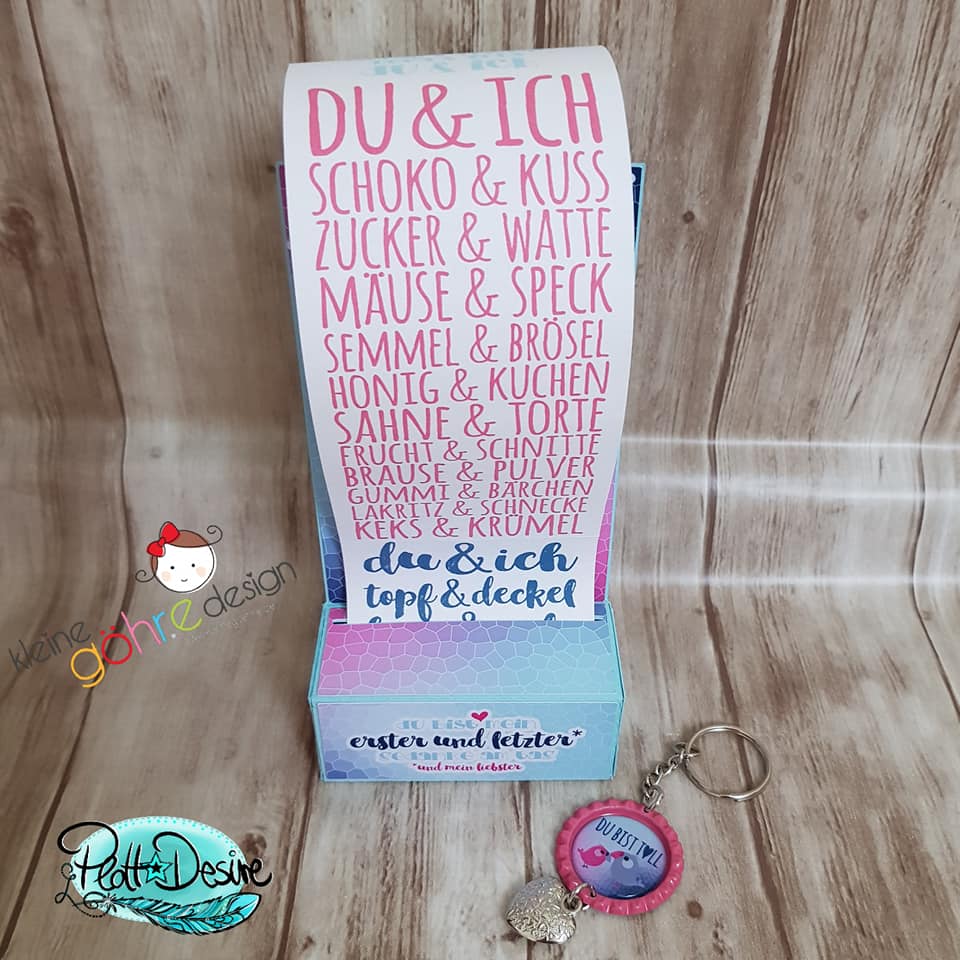 DU & ICH
DU & ICH
SCHOKO & KUSS
ZUCKER & WATTE
MÄUSE & SPECK
SEMMEL & BRÖSEL
HONIG & KUCHEN
SAHNE & TORTE
FRUCHT & SCHNITTE
BRAUSE & PULVER
GUMMI & BÄRCHEN
LAKRITZ & SCHNECKE
KEKS & KRÜMEL
du & ich
topf & deckel
kleine göhr.e design
du bist mein
erster und letzter*
gedanke am tag
*und mein liebster
DU BIST TOLL
Plott Desire